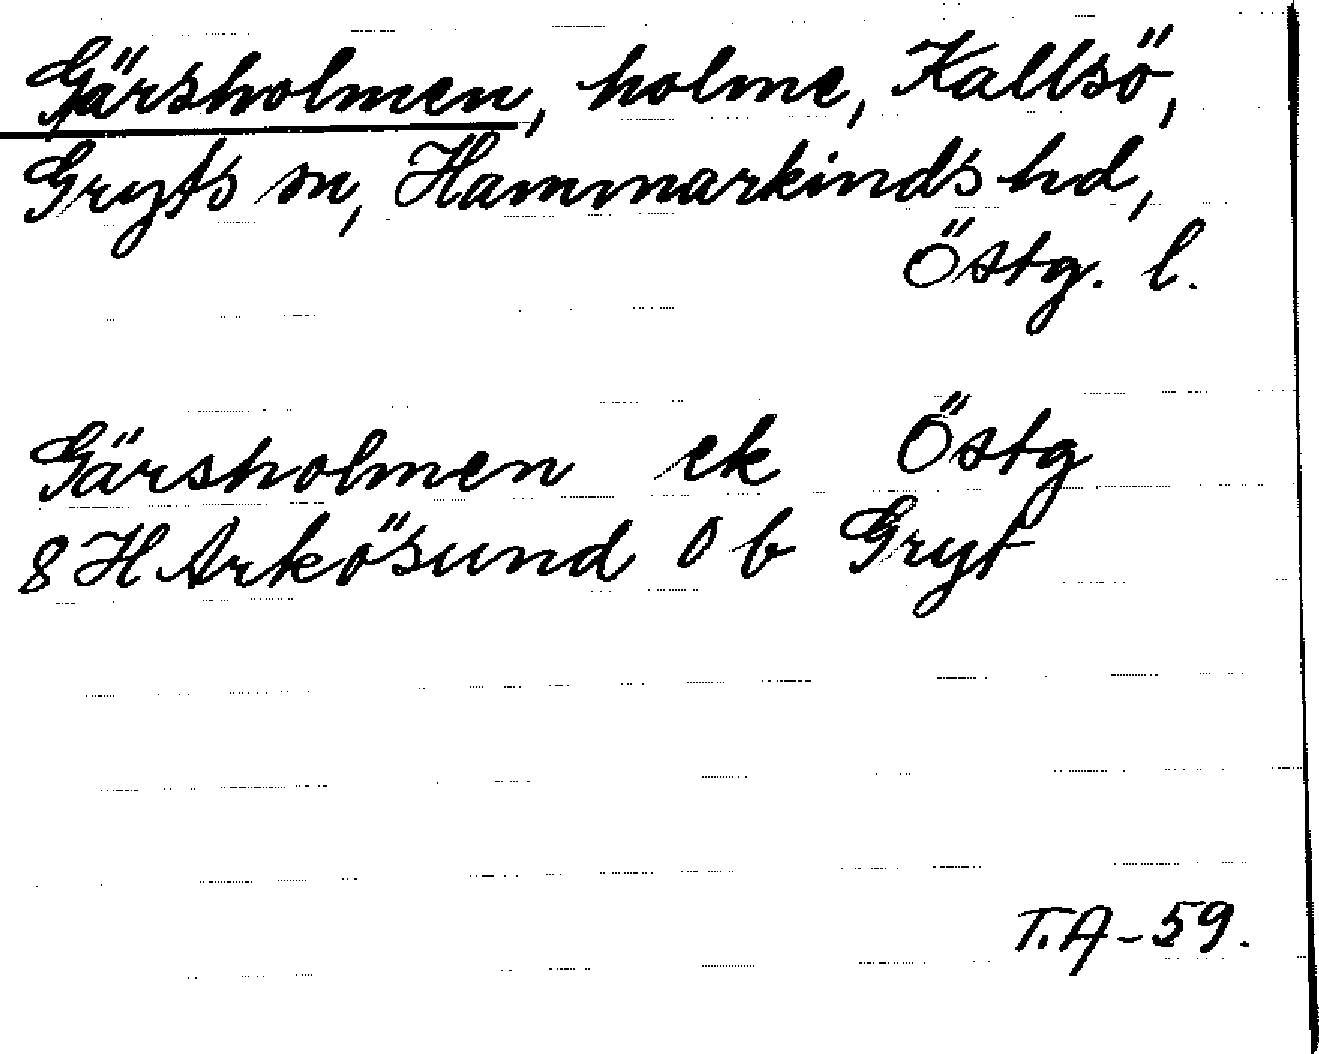 Gärsholmen, holme, Kallsö,
Gryts sn, Hammarkinds hd,
Östg. l.
Gärsholmen ek Östg
8 H Arkösund 0 b Gryt
T.A-59.